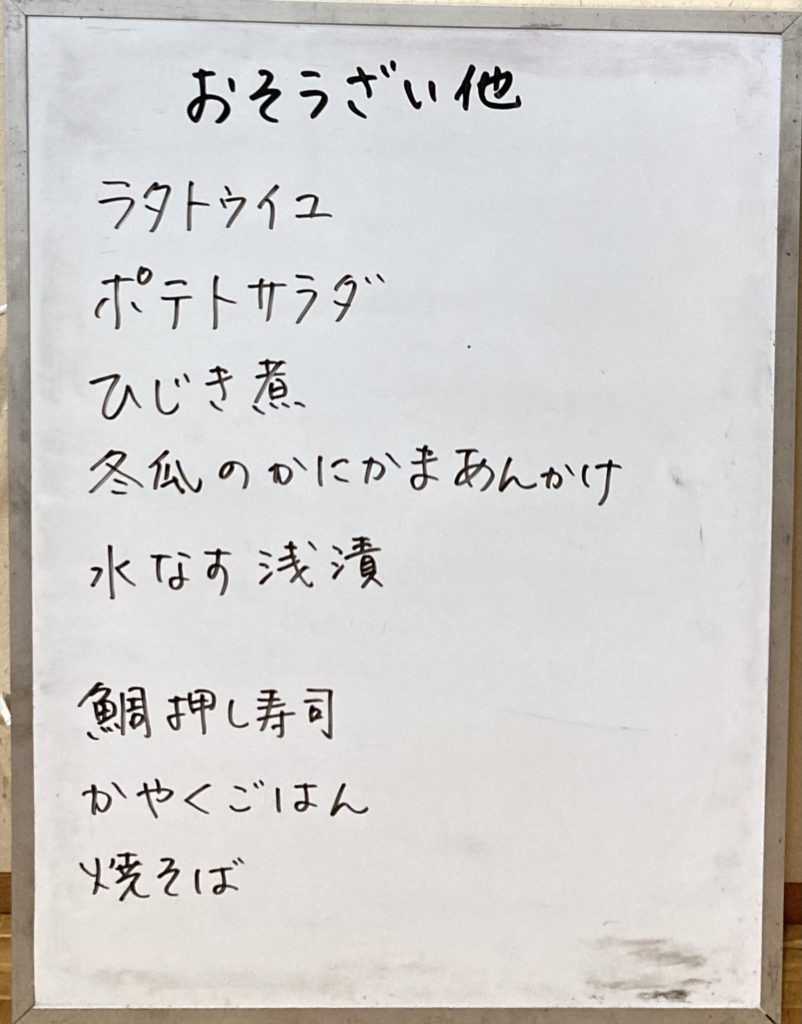 おそうざい他
ラタトゥイユ
ポテトサラダ
ひじき煮
冬瓜のかにかまあんかけ
水なす浅漬
鯛押し寿司
かやくごはん
焼そば